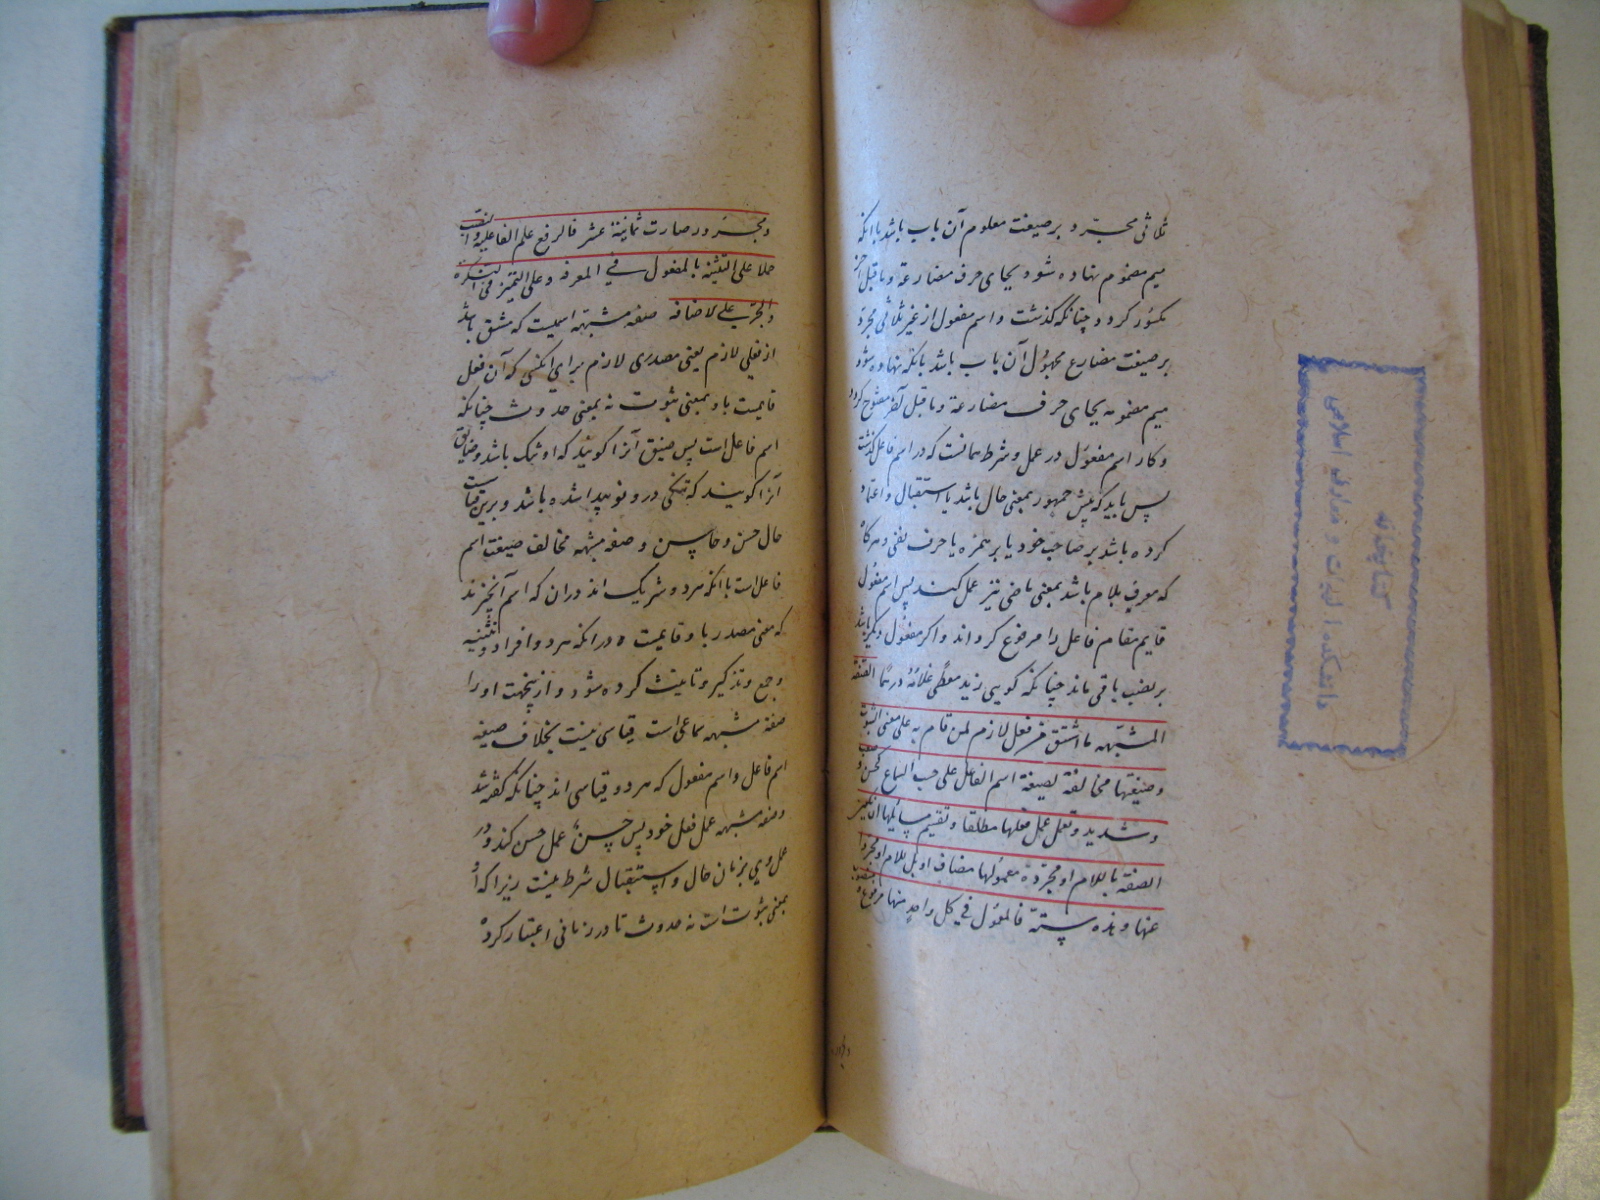 ثلاثی مجرّد و بر صیغت معلوم آن باب باشد با انکه
میم مضموم نهاده شود بجای حرف مضارعة و ما قبل آخر
مکسور کردد چنانکه کذشت و اسم مفعول از غیر ثلاثی مجرّد
بر صیغت مضارع مجهول آن باب باشد بانکه نهاده شود
میم مضمومه بجای حرف مضارعة و ما قبل آخر مفتوح کردد
و کار اسم مفعول در عمل و شرط همانست که در اسم فاعل کذشت
پس باید که پیش جمهور بمعنی حال باشد یا استقبال و اعتماد
کرده باشد بر صاحب خود یا بر همزه یا حرف نفی و هرکاه
که معرف بلام باشد بمعنی ماضی نیز عمل کند پس اسم مفعول
قایم مقام فاعل را مرفوع کرداند و اکر مفعول دیکر باشد
بر نصب باقی ماند چنانکه کویی زید معطًی غلامُهُ درهمًا الصفة
المشبّهه ما اشتق من فعل لازم لمن قام به علی معنی الثبوت
و صیغتها مخالفة لصیغة اسم الفاعل علی حسب السماع کحسن و صعب
و شدید و تعمل عمل فعلها مطلقا و تقسیم مسایلها ان تکون
الصفة باللام او مجرّدة و معمولها مضاف او باللام او مجرّدا
عنها و هذه ستّة فالمعمول فی کل واحدٍ منها مرفوع و منصوب
و مجرور
و مجرور صارت ثمانیة عشر فالرفع علی الفاعلیة و النصب
علی التشبیه بالمفعول فی المعرفة و علی التمیز فی النکرة
و الجرّ علی الاضافة صفه مشبّهه اسمیست که مشتق باشد
از فعلی لازم یعنی مصدری لازم برای انکسی که آن فعل
قایمست باو بمعنی ثبوت نه بمعنی حدوث چنانکه
اسم فاعل است پس ضیق آنرا کویند که او تنک باشد و ضایق
آنرا کویند که تنکی درو نو پیدا شده باشد و برین قیاست
حال حسن و حاسن و صفه مشبهه مخالف صیغت اسم
فاعل است با انکه هر دو شریک اند دران که اسم آنچیزند
که معنی مصدر باو قایمست و درانکه هر دو افراد و تثنیه
و جمع و تذکیر و تانیث کرده شود و ازینجهت او را
صفة مشبهه سماعی است قیاسی نیست بخلاف صیغه
اسم فاعل و اسم مفعول که هر دو قیاسی اند چنانکه کفته شد
و صفه مشبهه عمل فعل خود پس حسن عمل حسن کند و در
عمل وی بزمان حال و استقبال شرط نیست زیرا که او
بمعنی ثبوت است نه حدوث تا در زمانی اعتبار کرده
کتابخانه
دانشکده الهیات و معارف اسلامی